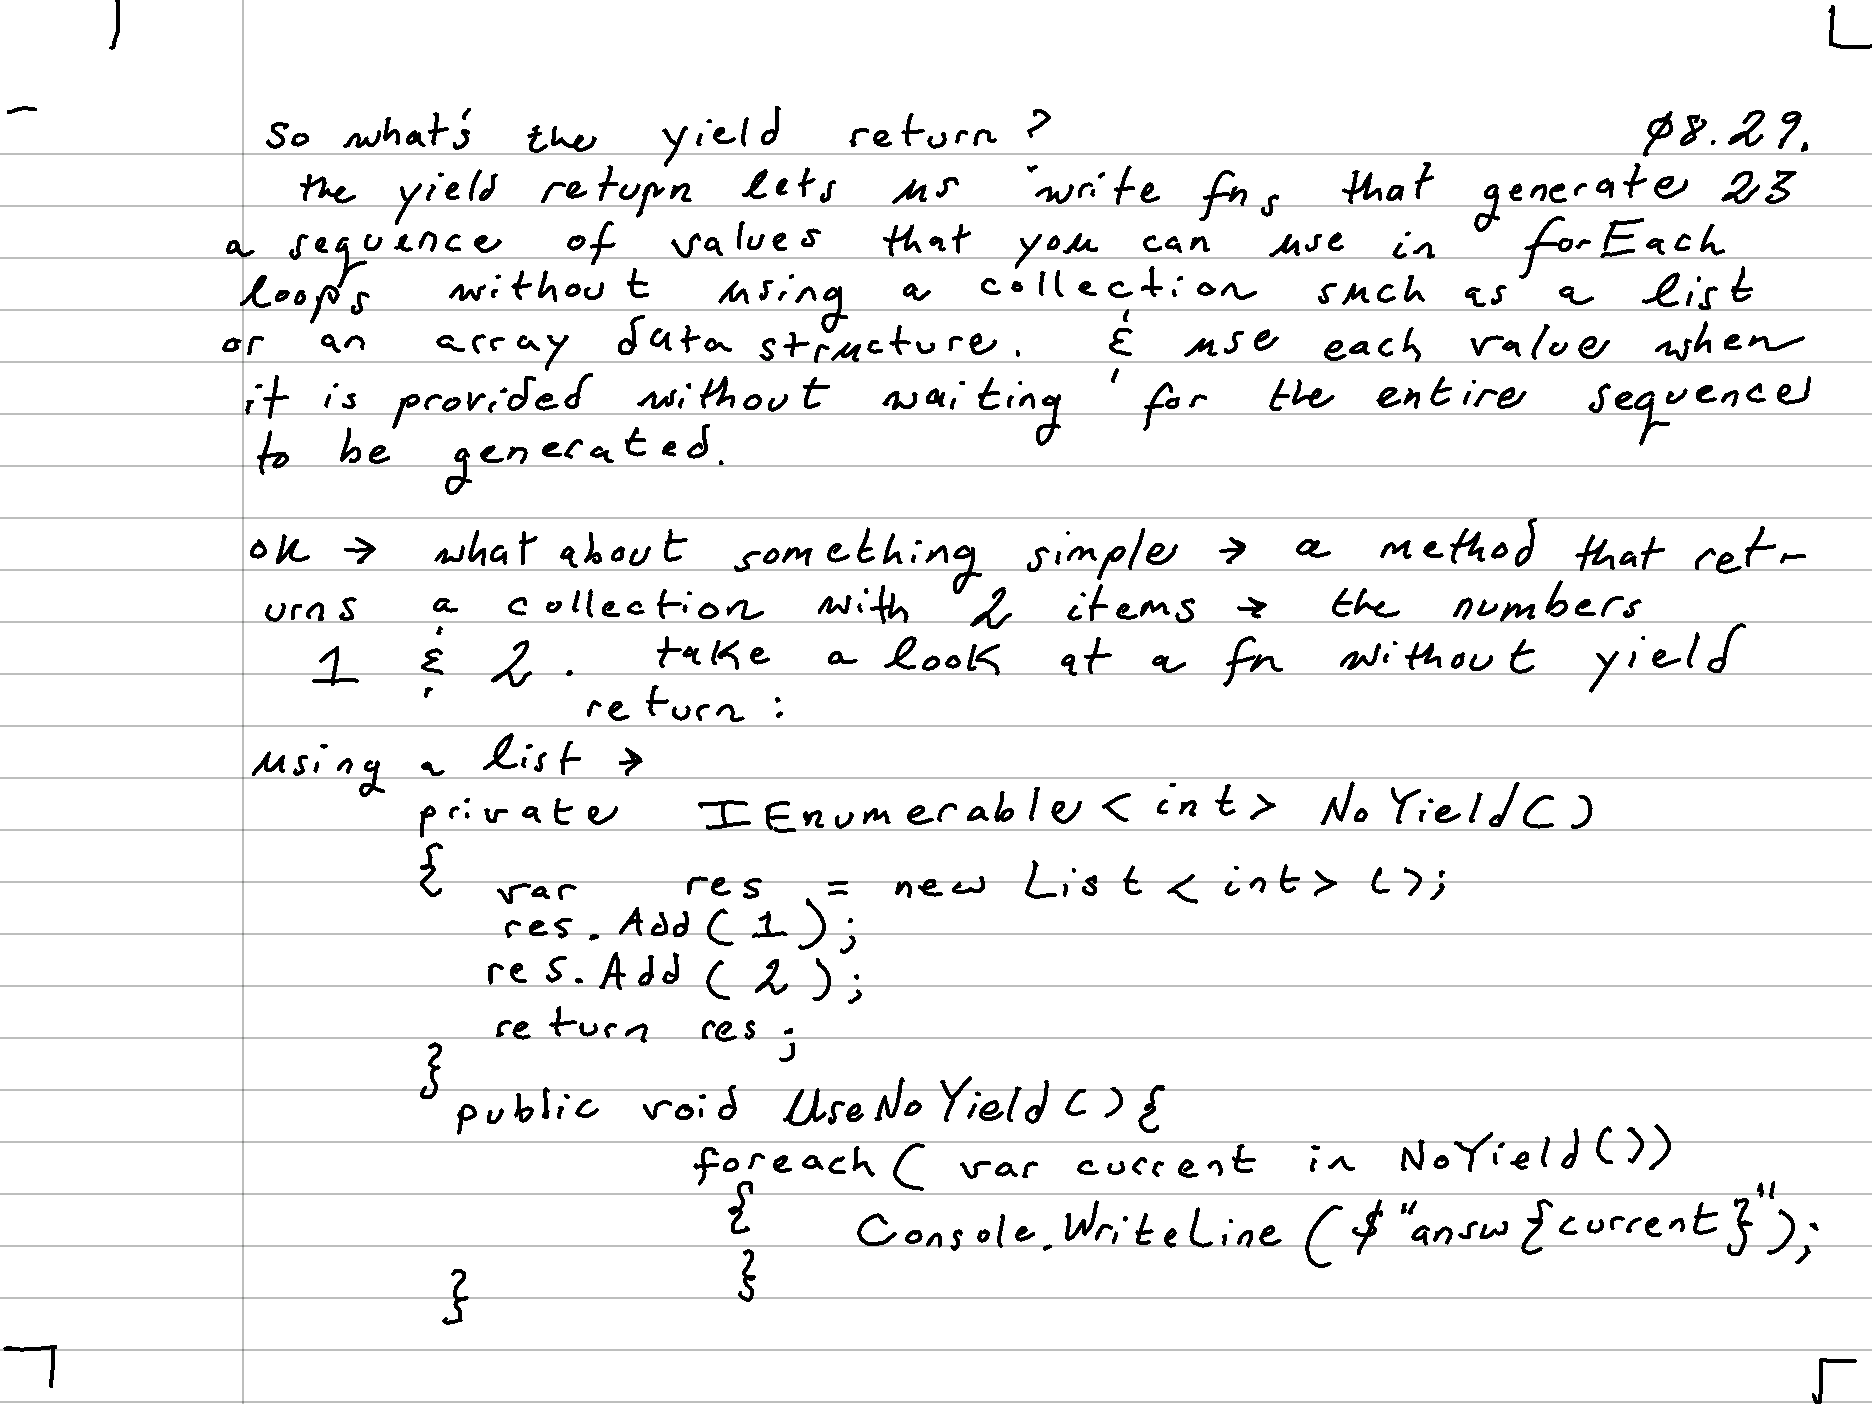 So what's the yield return? ϕ8.29.
the yield return lets us write fns that generate 23
a sequence of values that you can use in forEach
loops without using a collection such as a list
or an array data structure. & use each value when
it is provided without waiting for the entire sequence
to be generated.
ok → what about something simple → a method that ret-
urns a collection with 2 items → the numbers
1 & 2. take a look at a fn without yield
return:
using a list →
private IEnumerable<int> NoYield()
{ var res = new List<int>();
res.Add(1);
res.Add(2);
return res;
}
public void UseNoYield(){
foreach( var current in NoYield())
{ Console.WriteLine($"answ{current}");
}
}